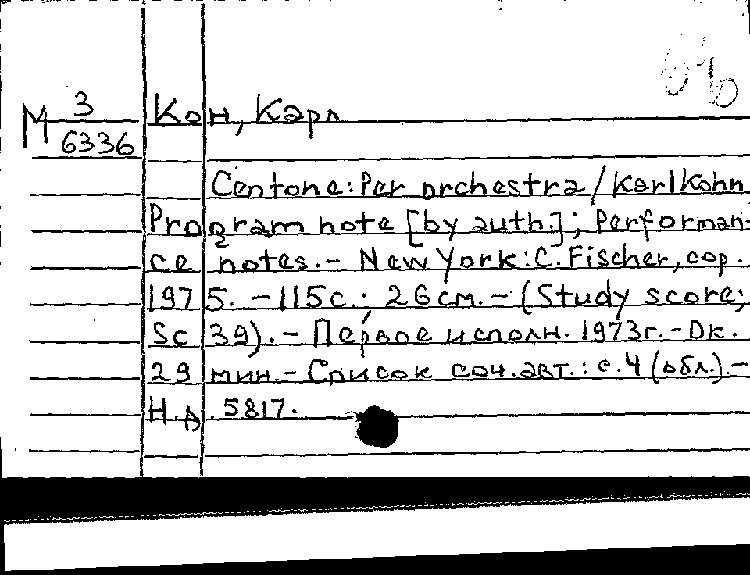 М 3
6336
Кон, Карл
Centone: Per orchestra / Karl Kohn
Program note [by auth.]; Performan-
ce notes. - New York: C. Fischer, cop.
1975. - 115 с.; 26 см. - (Study score;
Sc 39). - Первое исполн. 1973 г. - Ок.
29 мин. - Список соч. авт.: с. 4 (обл.). -
Н.д. 5817.